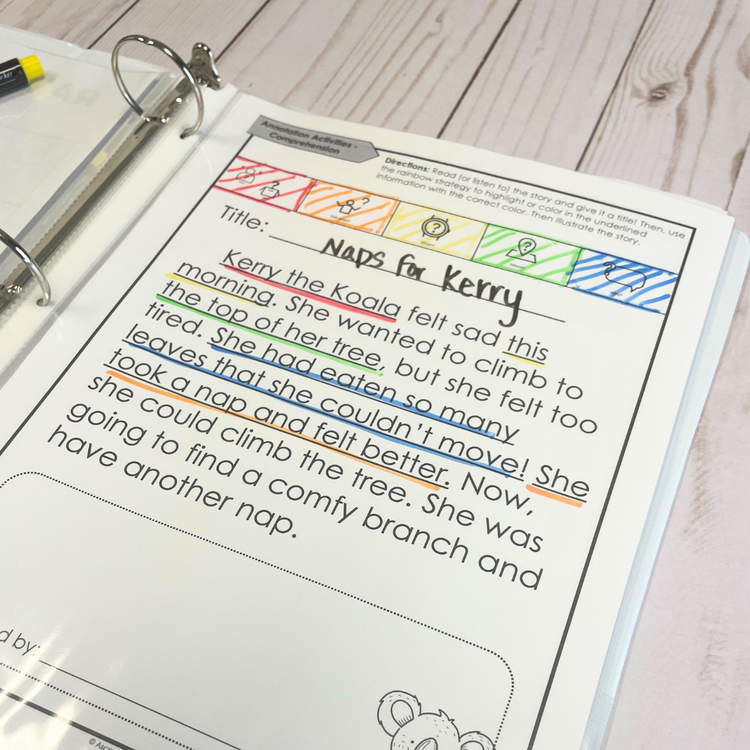 Annotation Activities -
Comprehension
Directions: Read (or listen to) the story and give it a title! Then, use
the rainbow strategy to highlight or color in the underlined
information with the correct color. Then illustrate the story.
Title: Naps for Kerry
Kerry the Koala felt sad this
morning. She wanted to climb to
the top of her tree, but she felt too
tired. She had eaten so many
leaves that she couldn't move! She
took a nap and felt better. Now,
she could climb the tree. She was
going to find a comfy branch and
have another nap.
by: